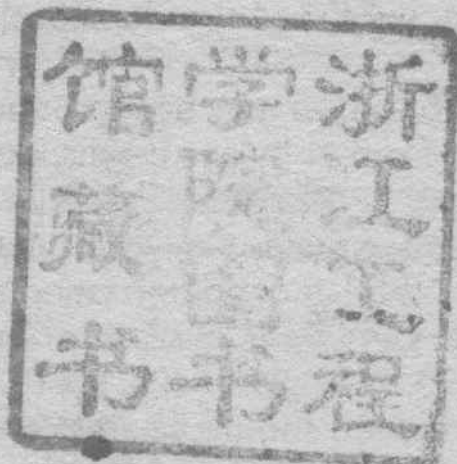 浙江工程
学院图书
馆藏书